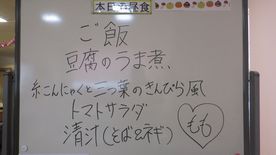 本日の昼食
ご飯
豆腐のうま煮
糸こんにゃくと三つ葉のきんぴら風
トマトサラダ
清汁(そば&ネギ)
もも